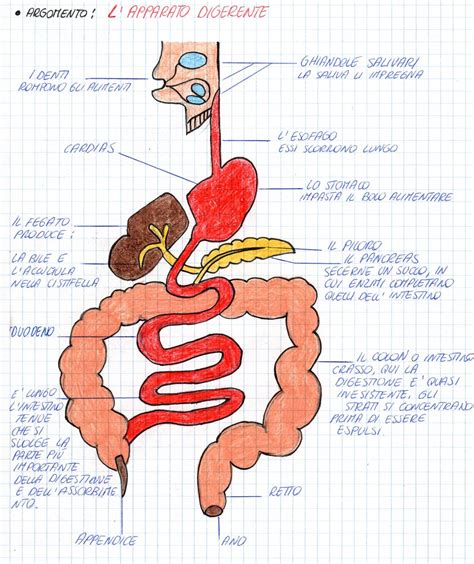 • ARGOMENTO: L'APPARATO DIGERENTE
I DENTI
ROMPONO GLI ALIMENTI
GHIANDOLE SALIVARI
LA SALIVA LI IMPREGNA
CARDIAS
L'ESOFAGO
ESSI SCORRONO LUNGO
LO STOMACO
IMPASTA IL BOLO ALIMENTARE
IL FEGATO
PRODUCE:
LA BILE E
L'ACCUMULA
NELLA CISTIFELLA
IL PILORO
IL PANCREAS
SECERNE UN SUCCO, IN
CUI ENZIMI COMPLETANO
QUELLI DELL'INTESTINO
DUODENO
IL COLON O INTESTINO
CRASSO, QUI LA
DIGESTIONE E' QUASI
INESISTENTE, GLI
STRATI SI CONCENTRANO
PRIMA DI ESSERE
ESPULSI.
E' LUNGO
L'INTESTINO
TENUE
CHE SI
SVOLGE LA
PARTE PIÙ
IMPORTANTE
DELLA DIGESTIONE
E DELL'ASSORBIME
NTO.
RETTO
APPENDICE
ANO